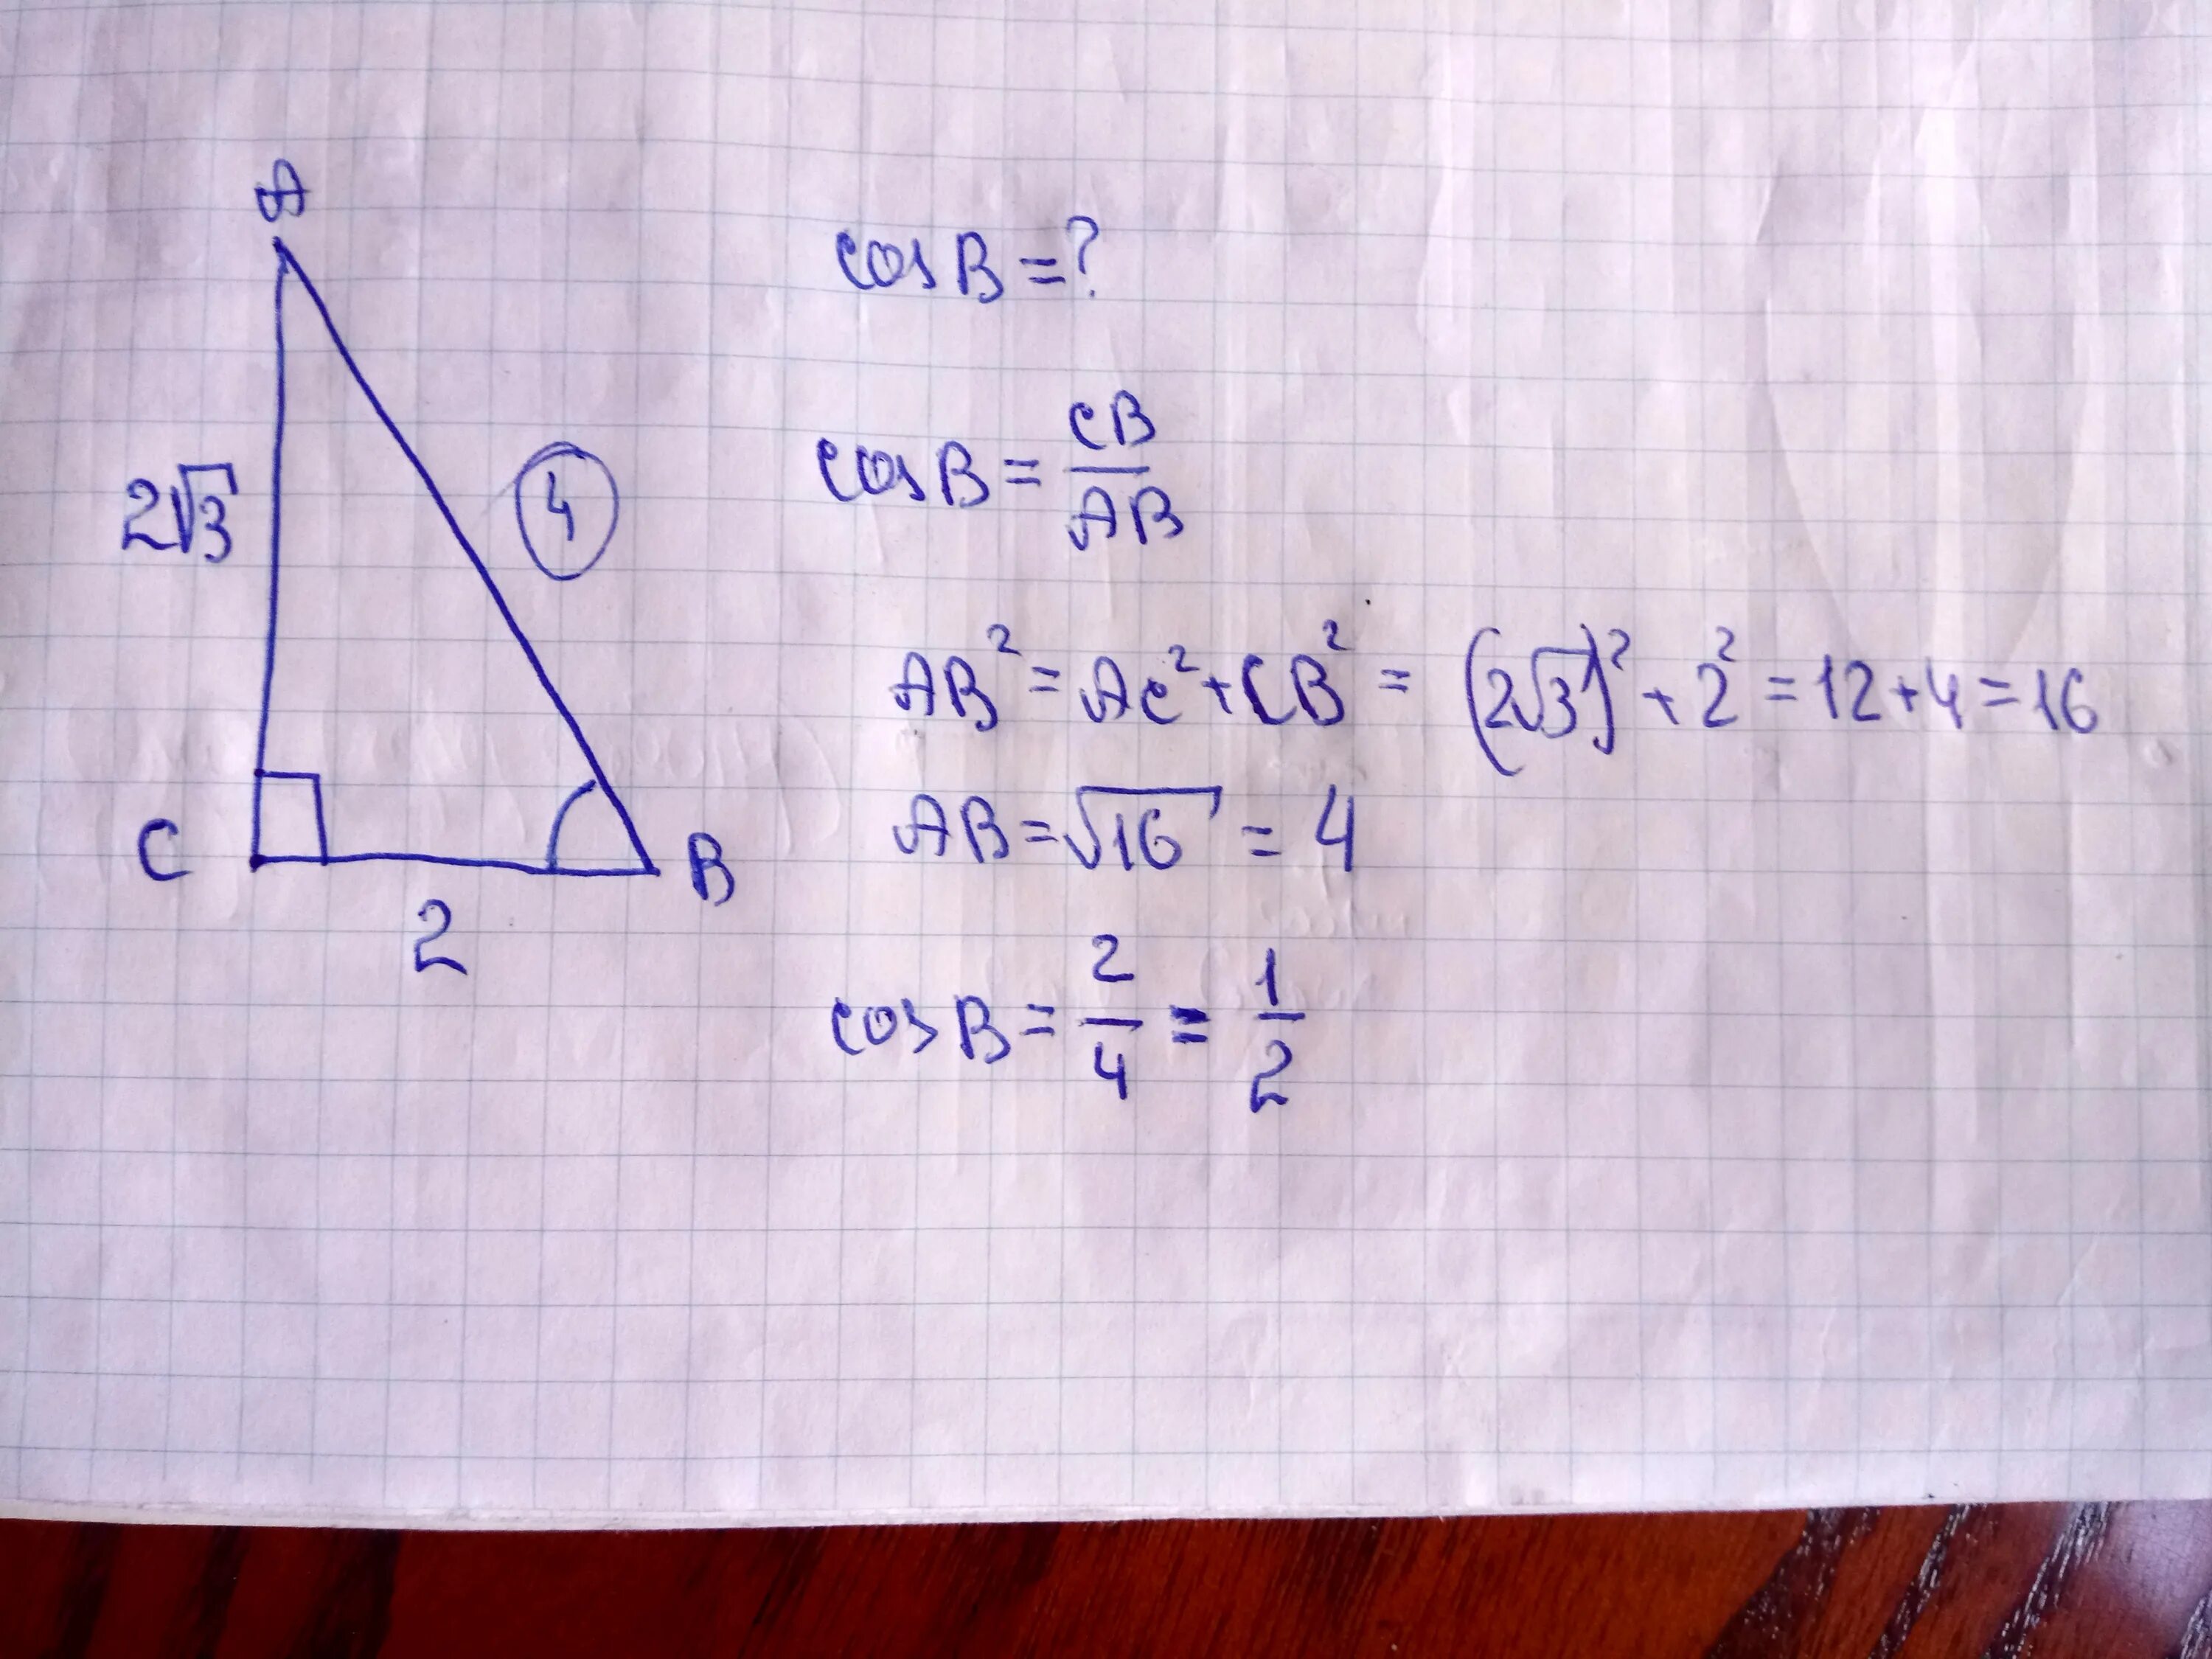 A
2√3
4
C
B
2
cos B = ?
cos B = CB/AB
AB² = AC² + CB² = (2√3)² + 2² = 12 + 4 = 16
AB = √16 = 4
cos B = 2/4 = 1/2